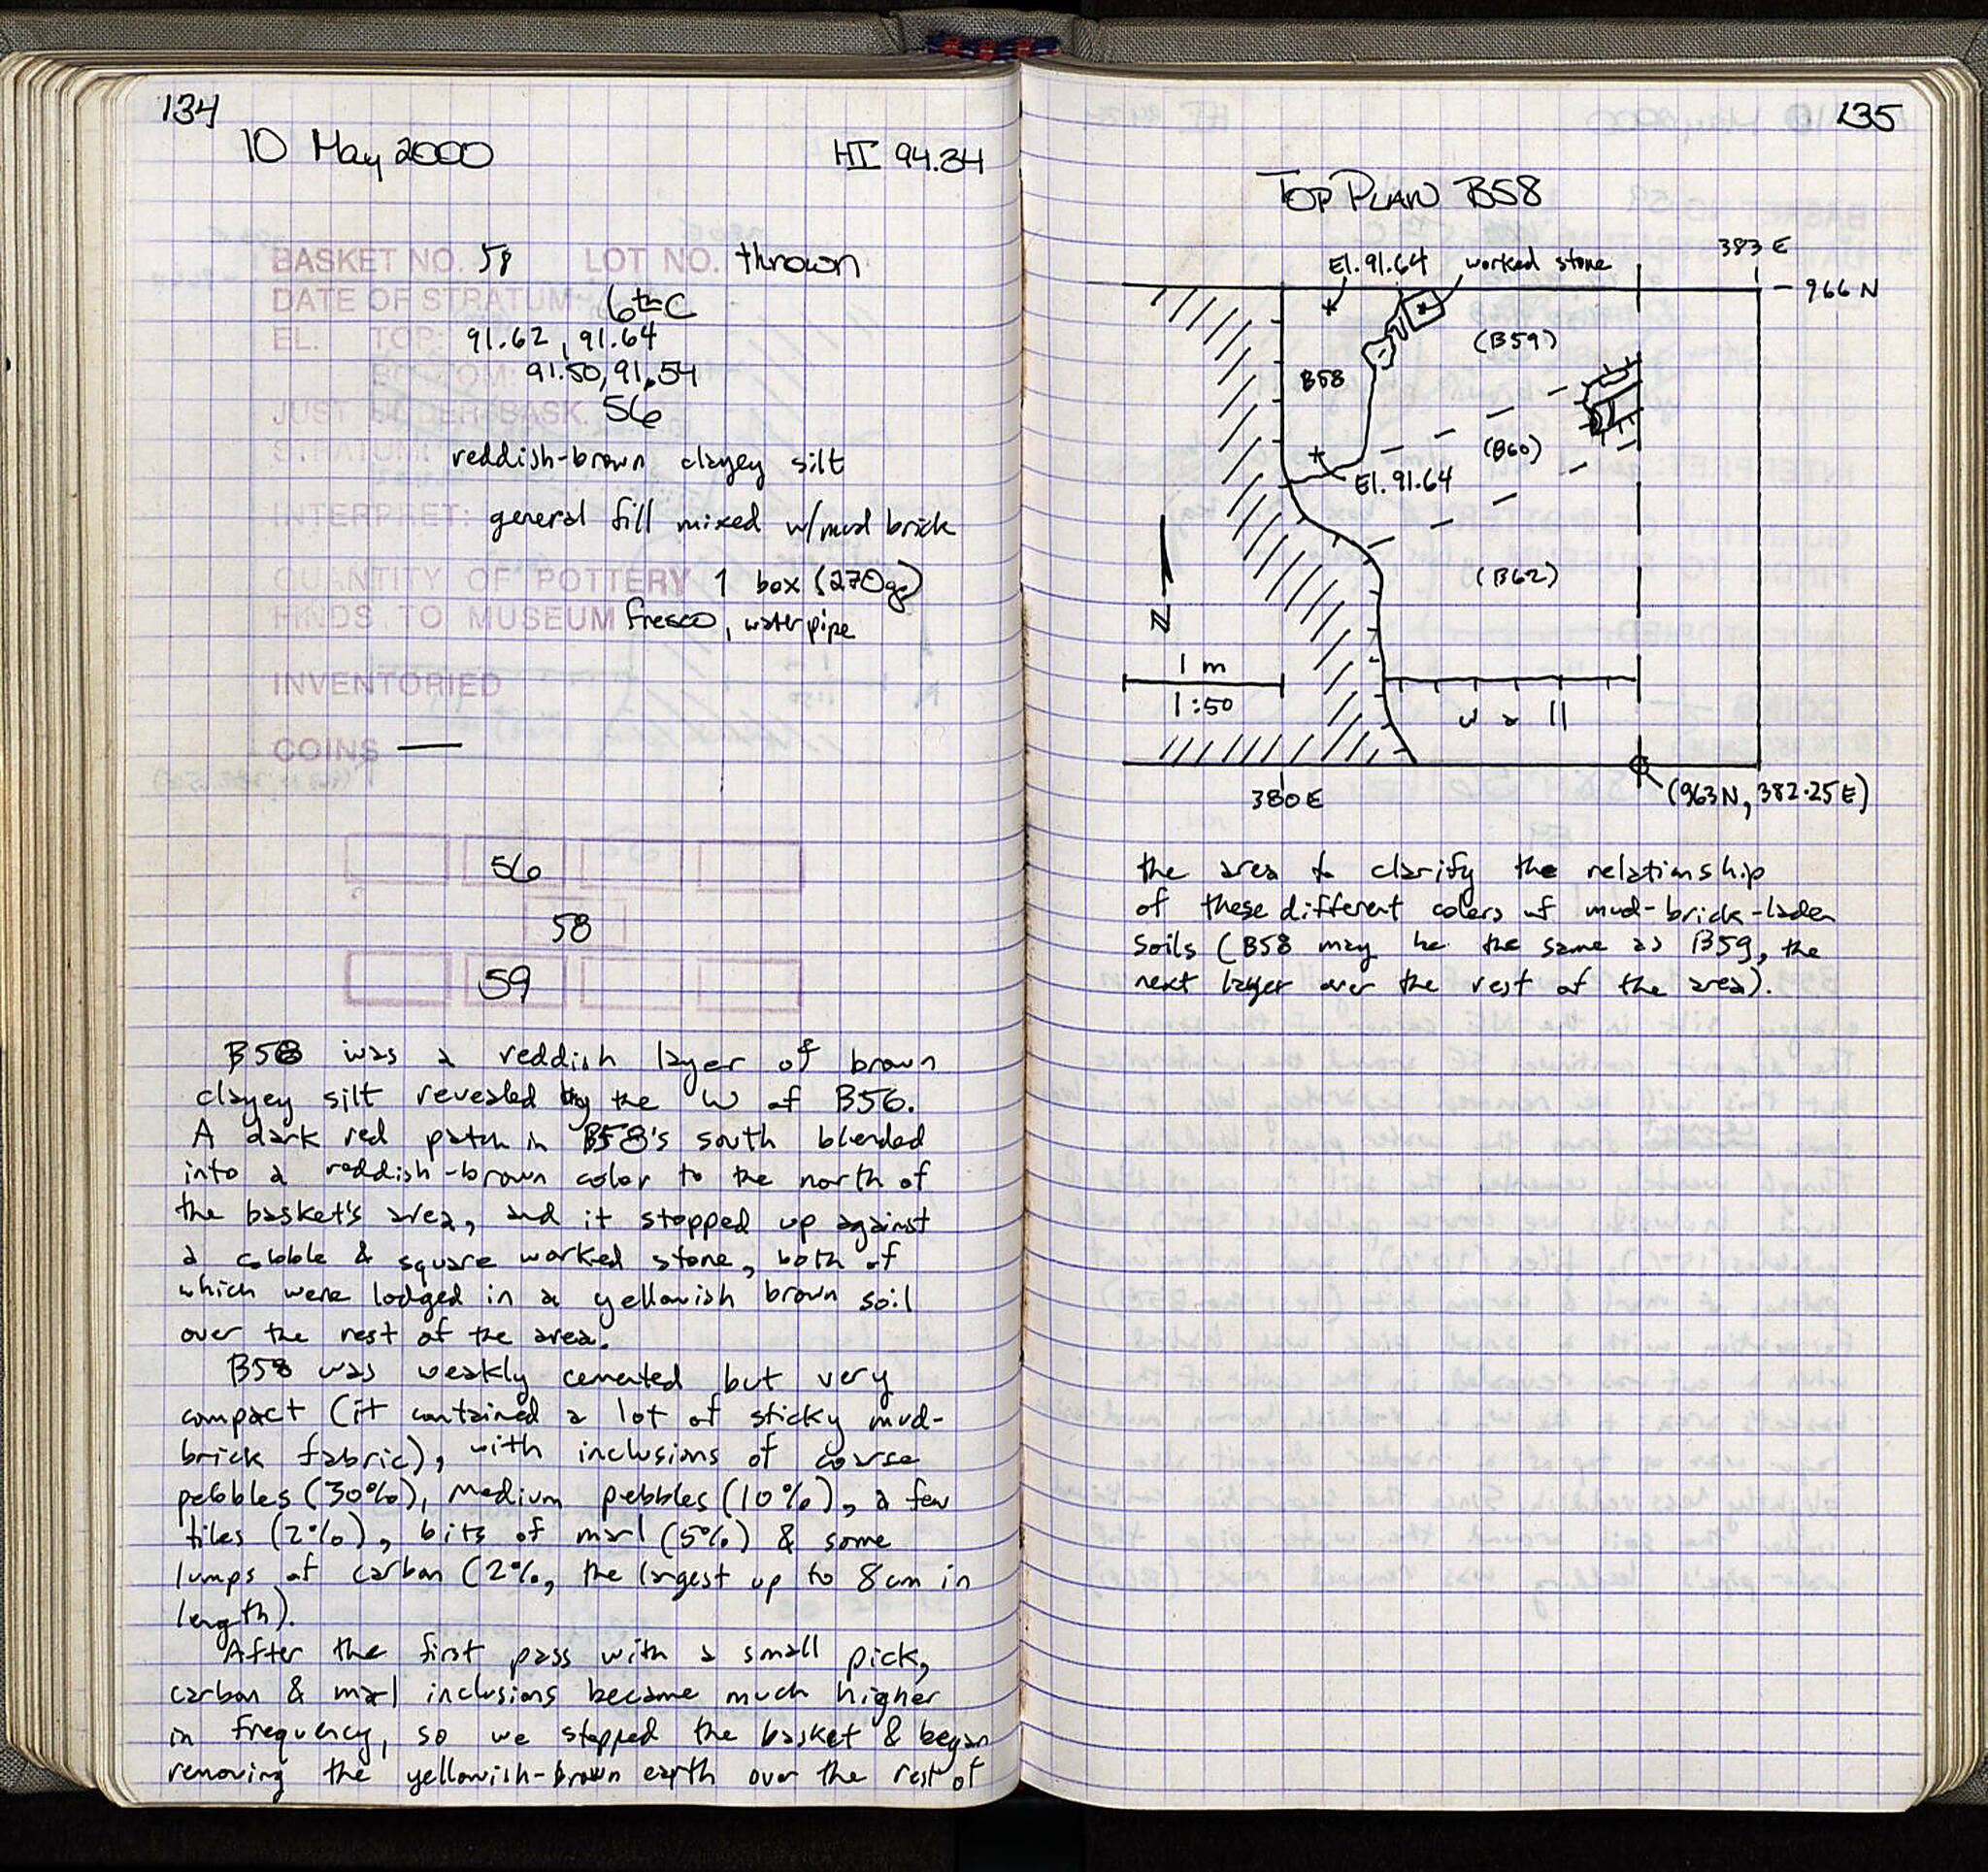 134
10 May 2000 HI 94.34
BASKET NO. 58 LOT NO. thrown
DATE OF STRATUM: 6th C
EL. TOP: 91.62, 91.64
BOTTOM: 91.50, 91.54
JUST UNDER BASK. 56
STRATUM: reddish-brown clayey silt
INTERPRET: general fill mixed w/mud brick
QUANTITY OF POTTERY 1 box (270g)
FINDS TO MUSEUM fresco, waterpipe
INVENTORIED
COINS —
56
58
59
B58 was a reddish layer of brown
clayey silt revealed by the W of B56.
A dark red patch in B58's south blended
into a reddish-brown color to the north of
the basket's area, and it stopped up against
a cobble & square worked stone, both of
which were lodged in a yellowish brown soil
over the rest of the area.
B58 was weakly cemented but very
compact (it contained a lot of sticky mud-
brick fabric), with inclusions of coarse
pebbles (30%), medium pebbles (10%), a few
tiles (2%), bits of marl (5%) & some
lumps of carbon (2%, the largest up to 8cm in
length).
After the first pass with a small pick,
carbon & marl inclusions became much higher
in frequency, so we stopped the basket & began
removing the yellowish-brown earth over the rest of
135
TOP PLAN B58
383 E
El. 91.64 worked stone
966 N
(B59)
B58
(B60)
El. 91.64
(B62)
N
1 m
1:50
wall
380 E
(963N, 382.25E)
the area to clarify the relationship
of these different colors of mud-brick-laden
soils (B58 may be the same as B59, the
next layer over the rest of the area).